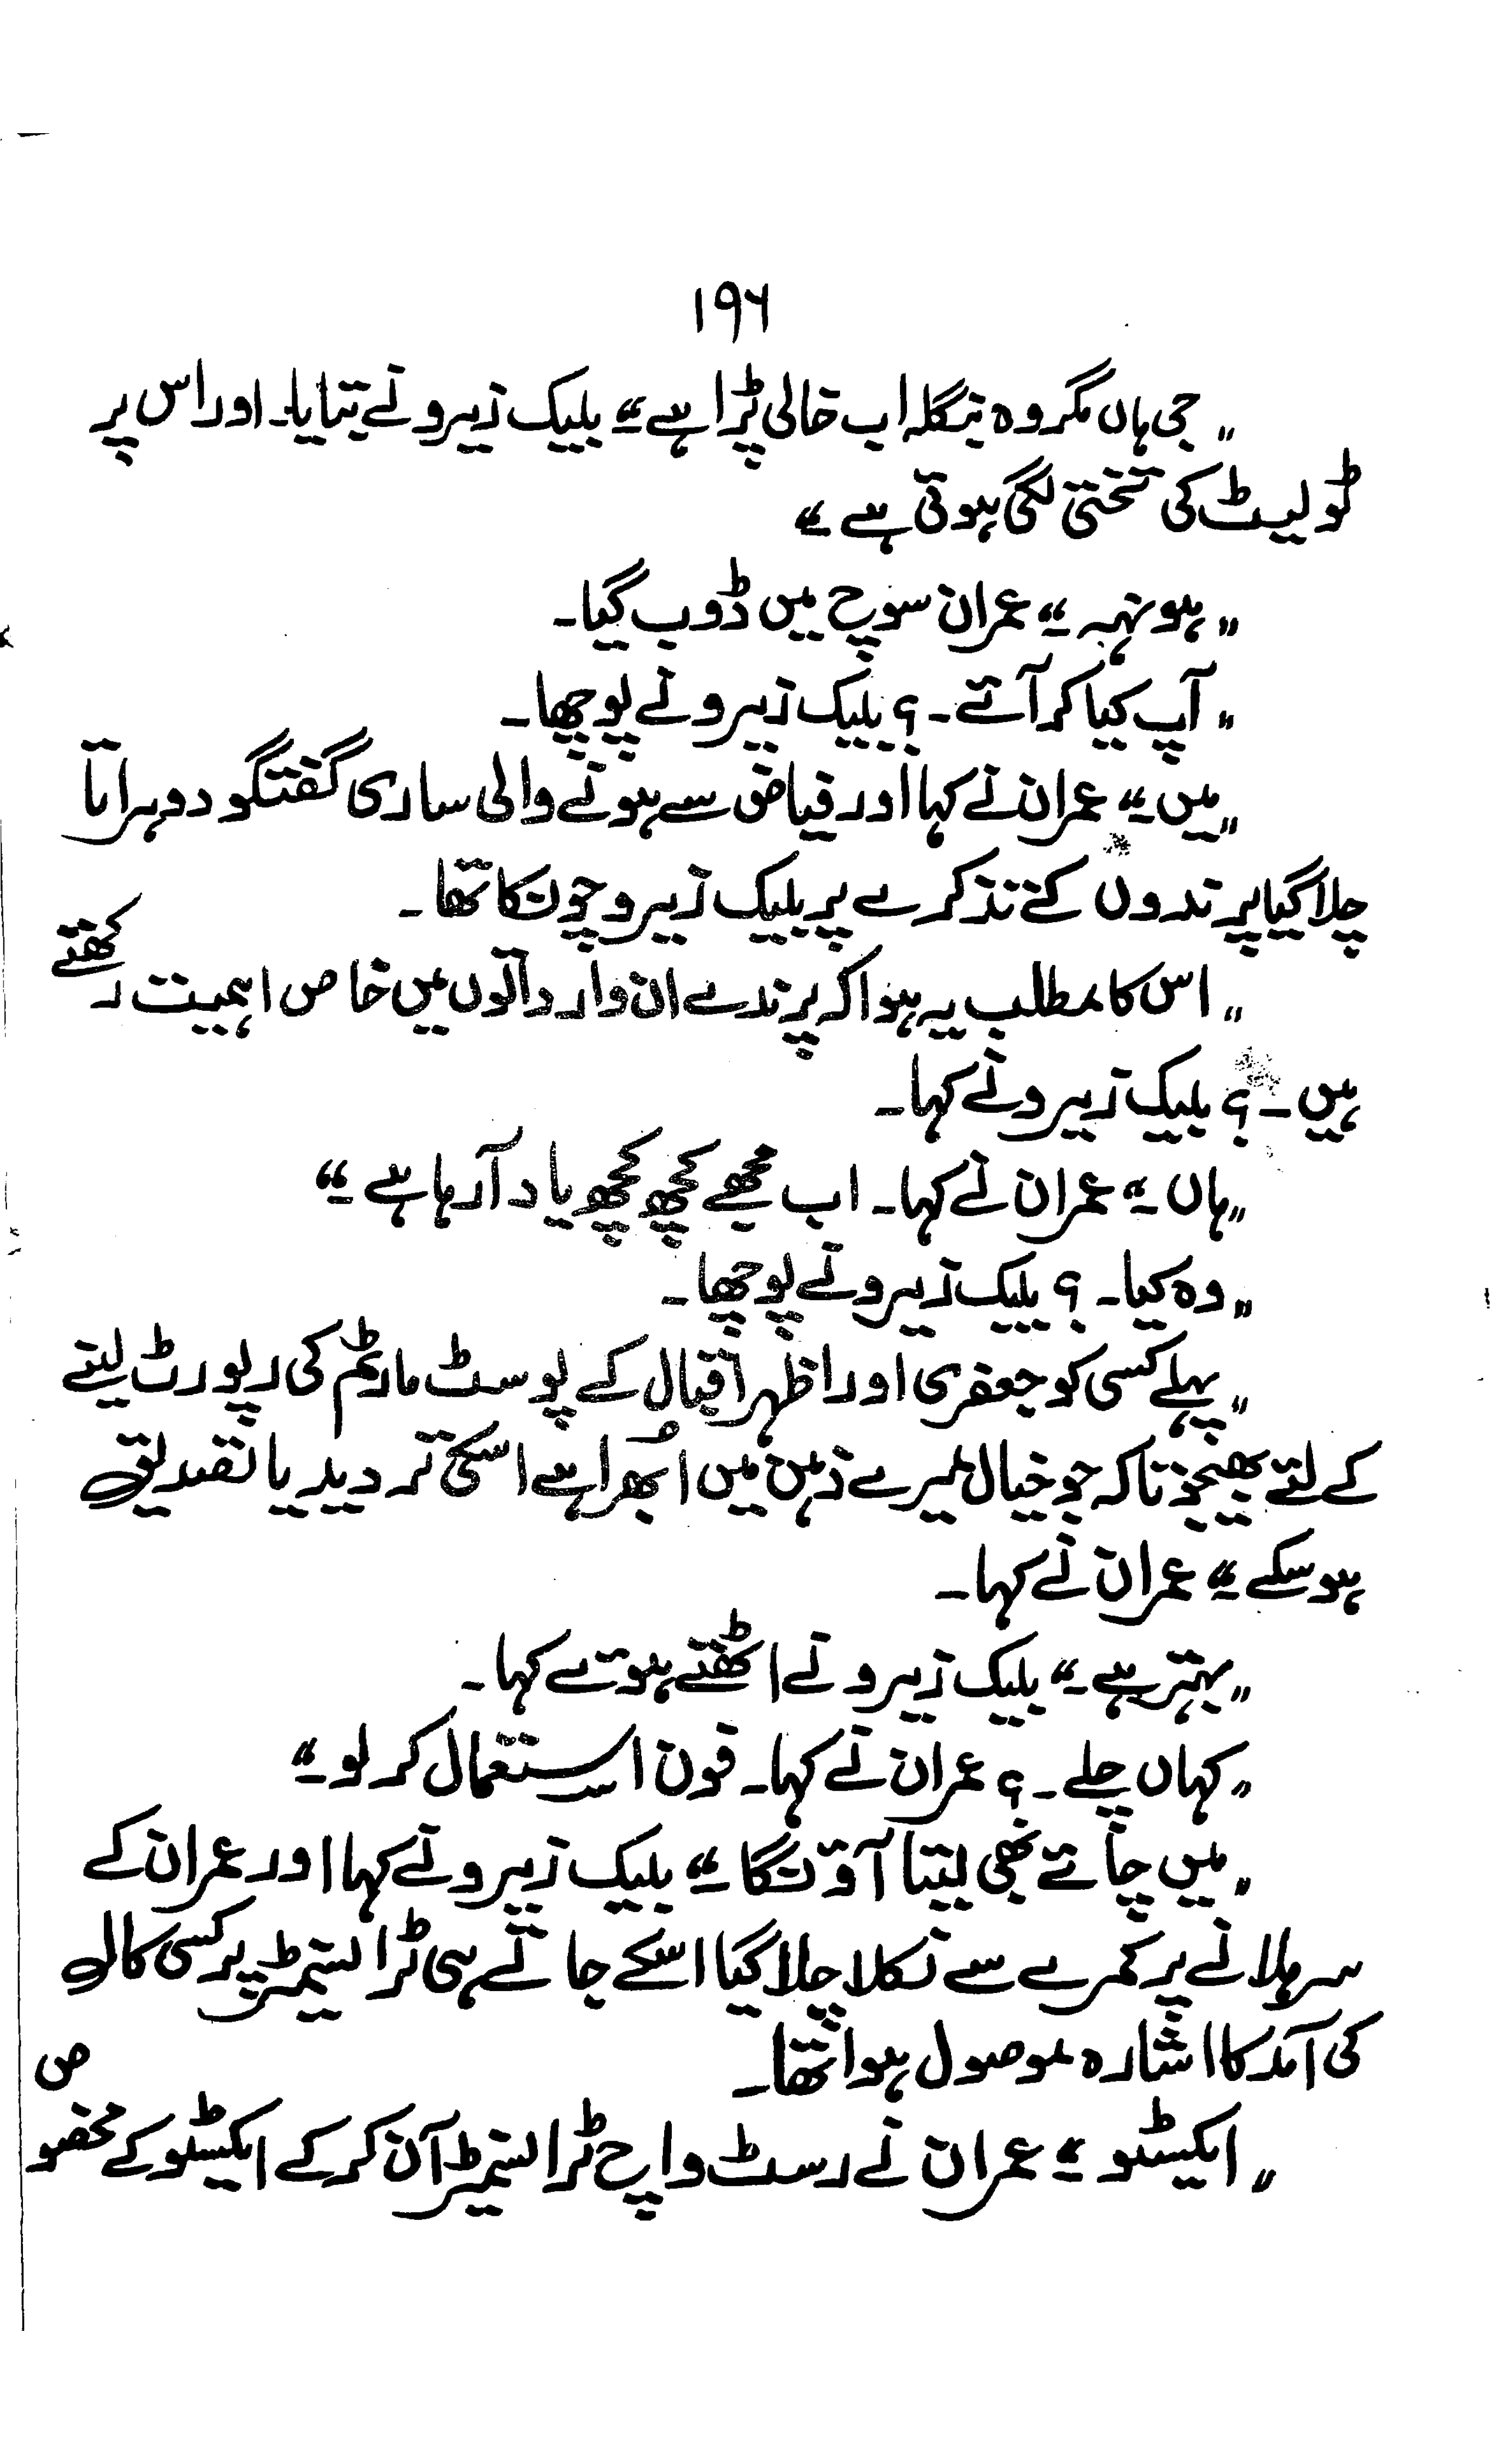 ۱۹۶
"جی ہاں مگر وہ بنگلہ اب خالی پڑا ہے۔" بلیک زیرو نے بتایا۔ اور اس پر
ٹولیٹ کی تختی لگی ہوئی ہے۔"
"ہونہہ۔" عمران سوچ میں ڈوب گیا۔
"آپ کیا کر آئے۔؟ بلیک زیرو نے پوچھا۔
"میں۔" عمران نے کہا اور فیاض سے ہونے والی ساری گفتگو دوہراتا
چلا گیا پرندوں کے تذکرے پر بلیک زیرو چونکا تھا۔
"اس کا مطلب یہ ہوا کہ پرندے ان وارداتوں میں خاص اہمیت رکھتے
ہیں۔؟ بلیک زیرو نے کہا۔
"ہاں۔" عمران نے کہا۔ اب مجھے کچھ کچھ یاد آ رہا ہے۔"
"وہ کیا۔؟ بلیک زیرو نے پوچھا۔
"پہلے کسی کو جعفری اور اظہر اقبال کے پوسٹ مارٹم کی رپورٹ لینے
کے لئے بھیجو تاکہ جو خیال میرے ذہن میں اُبھرا ہے اسکی تردید یا تصدیق
ہو سکے۔" عمران نے کہا۔
"بہتر ہے۔" بلیک زیرو نے اٹھتے ہوئے کہا۔
"کہاں چلے۔؟ عمران نے کہا۔ فون استعمال کر لو۔"
"میں چائے بھی لیتا آؤنگا۔" بلیک زیرو نے کہا اور عمران کے
سر ہلانے پر کمرے سے نکلا چلا گیا اسکے جاتے ہی ٹرانسمیٹر پر کسی کال
کی آمد کا اشارہ موصول ہوا تھا۔
"ایکسٹو۔" عمران نے رسٹ واچ ٹرانسمیٹر آن کر کے ایکسٹو کے مخصوص